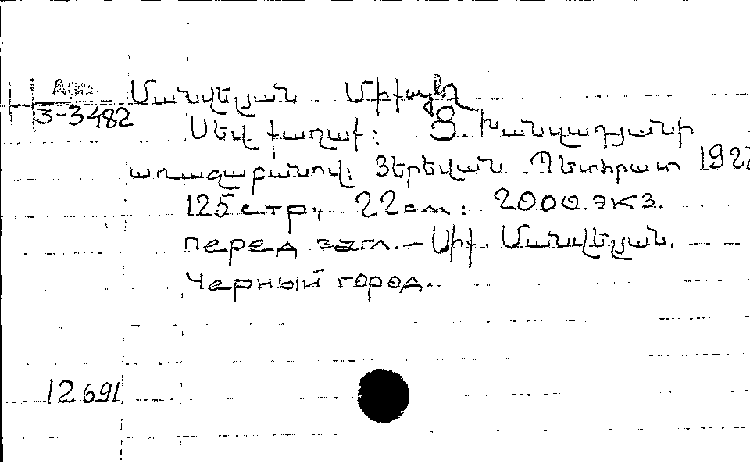 Арм
3-3482
Մանվելյան Միքայել
Սեվ քաղաք: Ց. Խանզադյանի
առաջաբանով: Յերեվան Պետհրատ 192
125 стр., 22 см. 2000 экз.
перед загл. – Միք. Մանվելյան.
Черный город.
12691